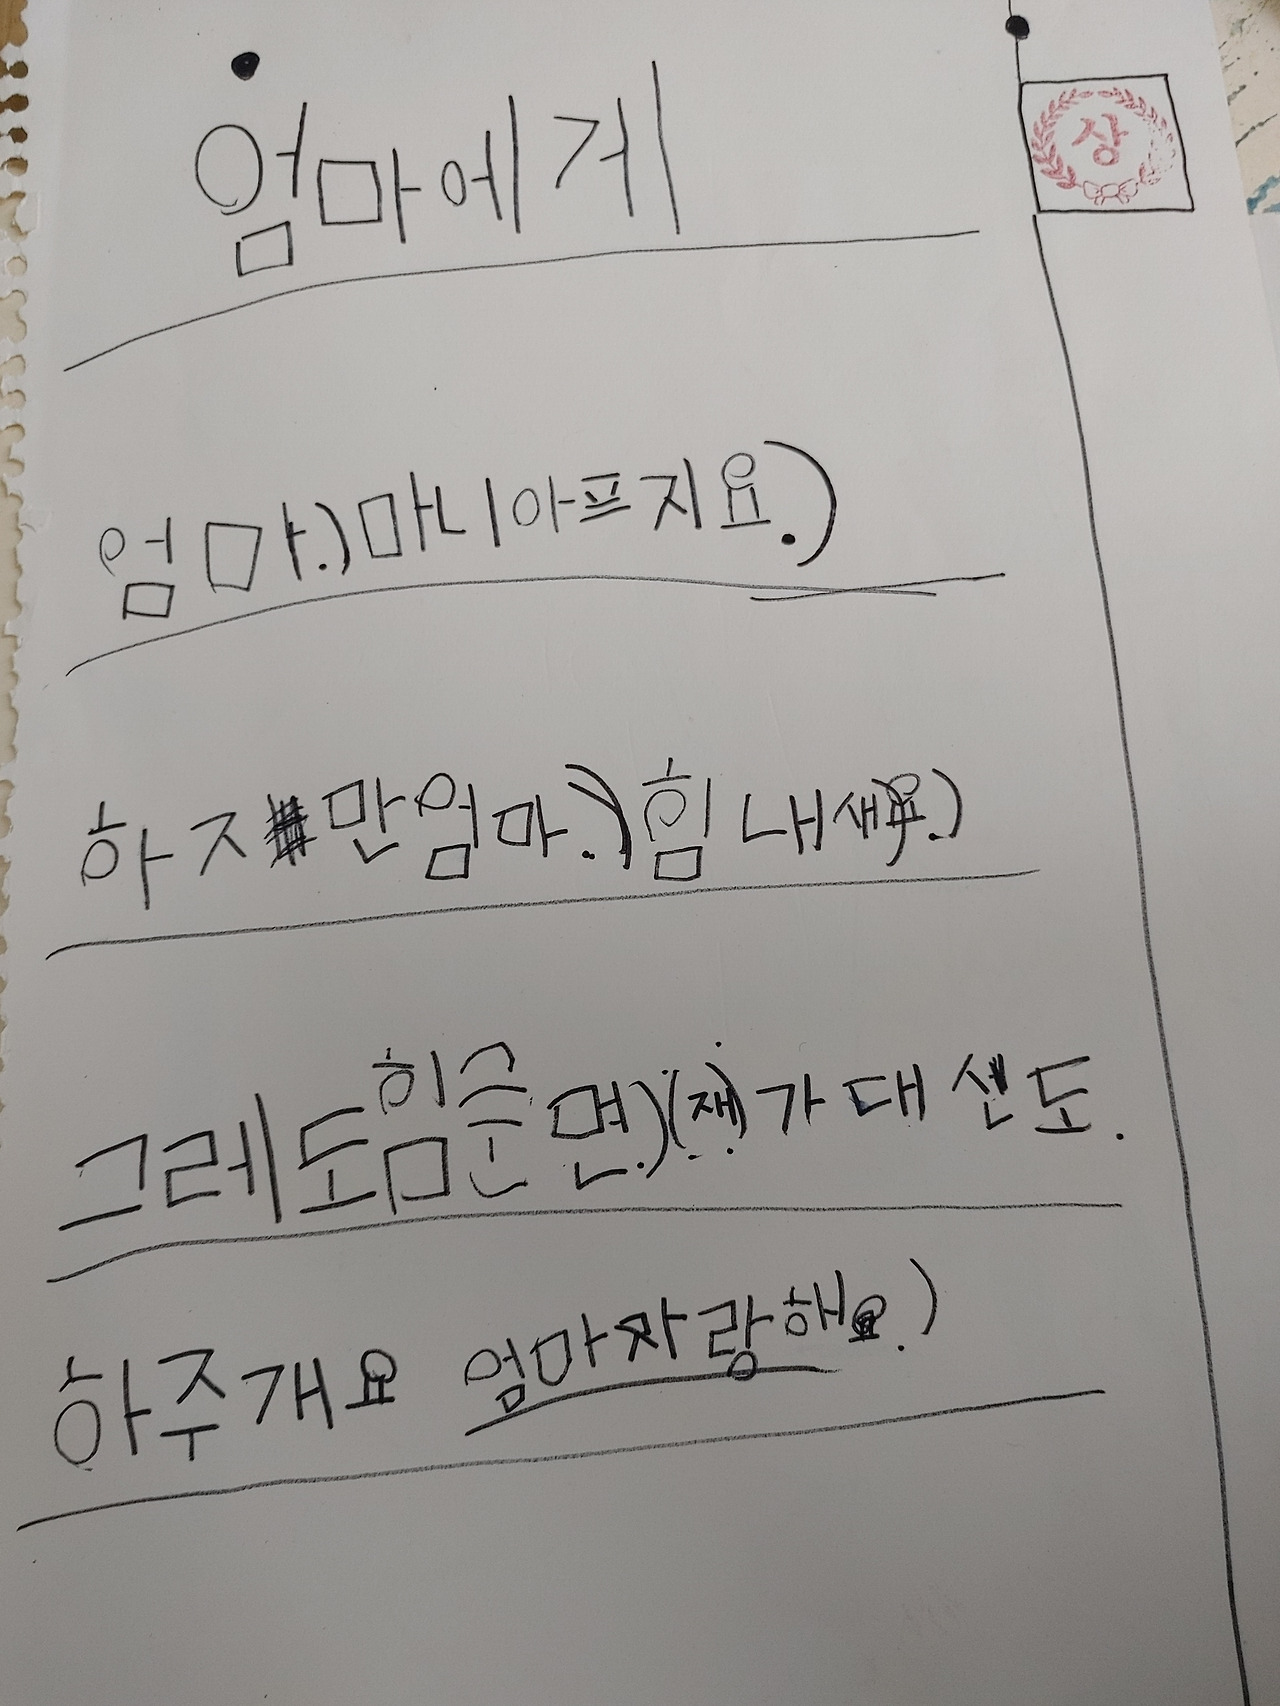 엄마에게
상
엄마.) 마니아프지요.)
하지만엄마.) 힘내새요.)
그레도힘준면.)(재)가대신도.
하주개요 엄마자랑해요.)